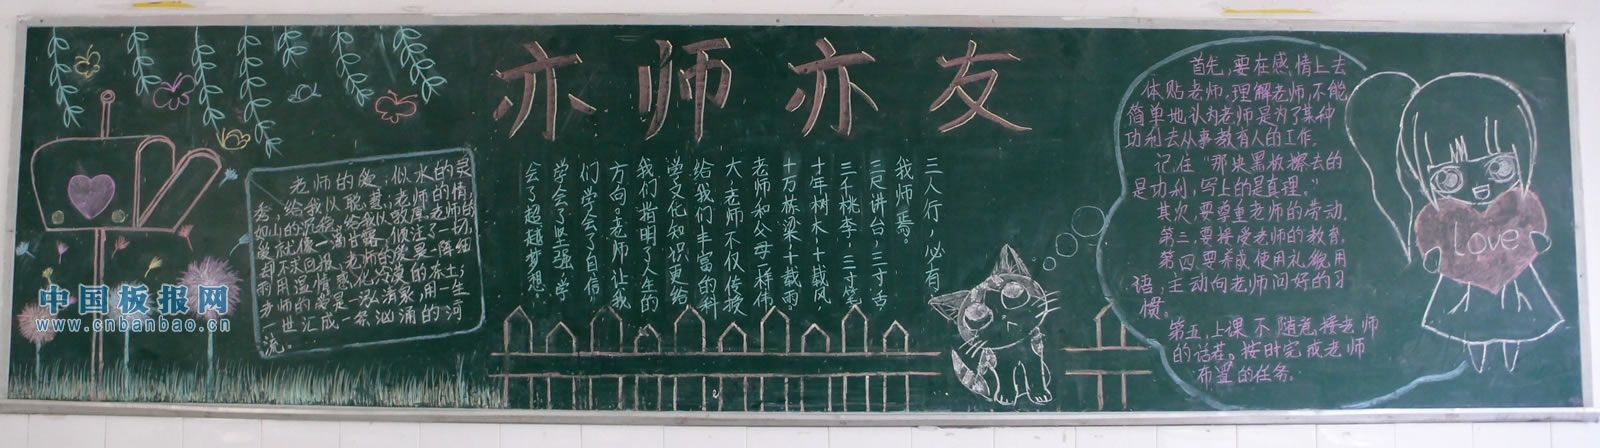 亦师亦友
老师的爱，似水的灵
秀，给我以聪慧；老师的情
如山的沉稳，给我以敦厚。老师的
爱就像一滴甘露，倾其了一切，
却不求回报，老师的爱是一阵细
雨用温情感化冷漠的冻土；
老师的爱是一泓清泉，用一生
一世汇成一条汹涌的河
流。
三人行，必有
我师焉。
三尺讲台，三寸舌
三千桃李，三寸笔
十年树木，十载风，
十万栋梁，十载雨。
老师和父母一样伟
大，老师不仅传授
给我们丰富的科
学文化知识更给
我们指明了人生的
方向。老师让我
们学会了自信，
学会了坚强，学
会了超越梦想。
首先，要在感情上去
体贴老师，理解老师，不能
简单地认为老师是为了某种
功利去从事教育人的工作。
记住“那块黑板擦去的
是功利，写上的是真理。”
其次，要尊重老师的劳动。
第三，要接受老师的教育。
第四，要养成使用礼貌用
语，主动向老师问好的习
惯。
第五，上课不随意接老师
的话茬，按时完成老师
布置的任务。
Love
中国板报网
www.cnbanbao.cn